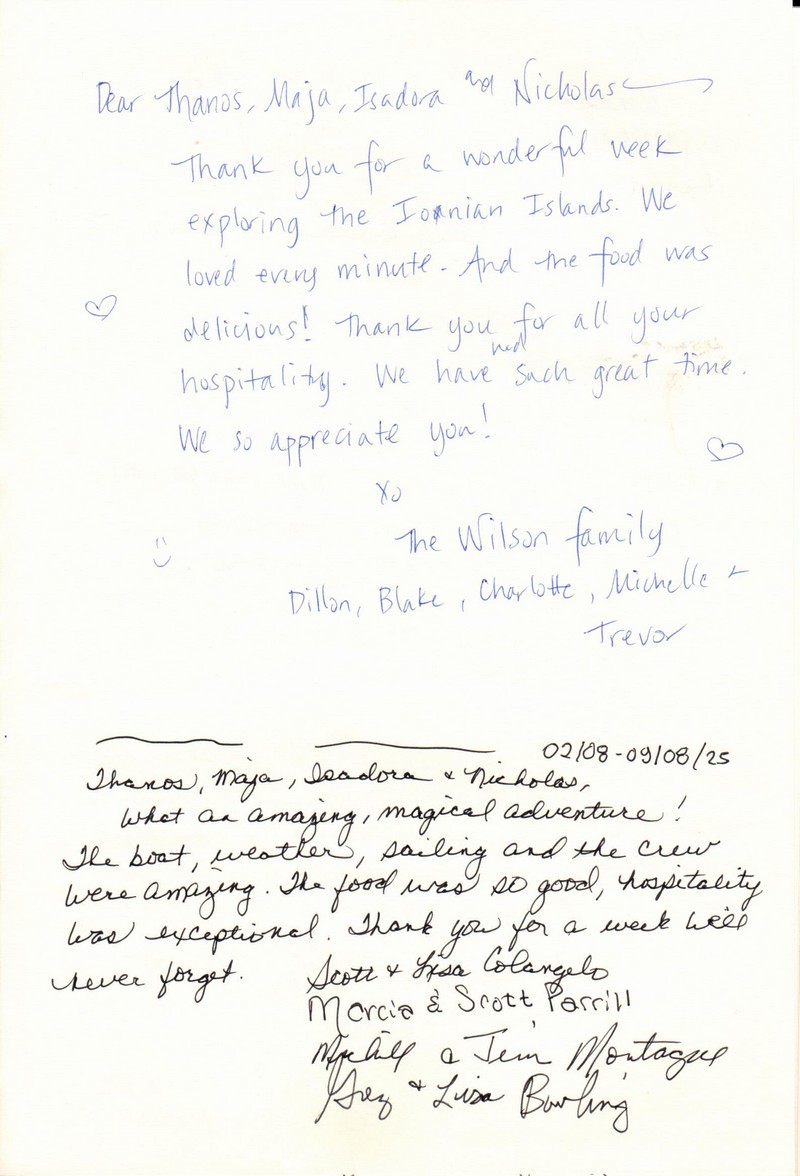 Dear Thanos, Maja, Isadora and Nicholas
Thank you for a wonderful week
exploring the Ionian Islands. We
loved every minute. And the food was
delicious! Thank you for all your
hospitality. We have had such great time.
We so appreciate you!
xo
The Wilson family
Dillon, Blake, Charlotte, Michelle +
Trevor
02/08-09/08/25
Thanos, Maja, Isadora & Nicholas,
What an amazing, magical adventure!
The boat, weather, sailing and the crew
were amazing. The food was so good, hospitality
was exceptional. Thank you for a week we'll
never forget.
Scott & Lisa Colangelo
Marcia & Scott Parrill
Jim Montague
Greg & Lisa Bowling